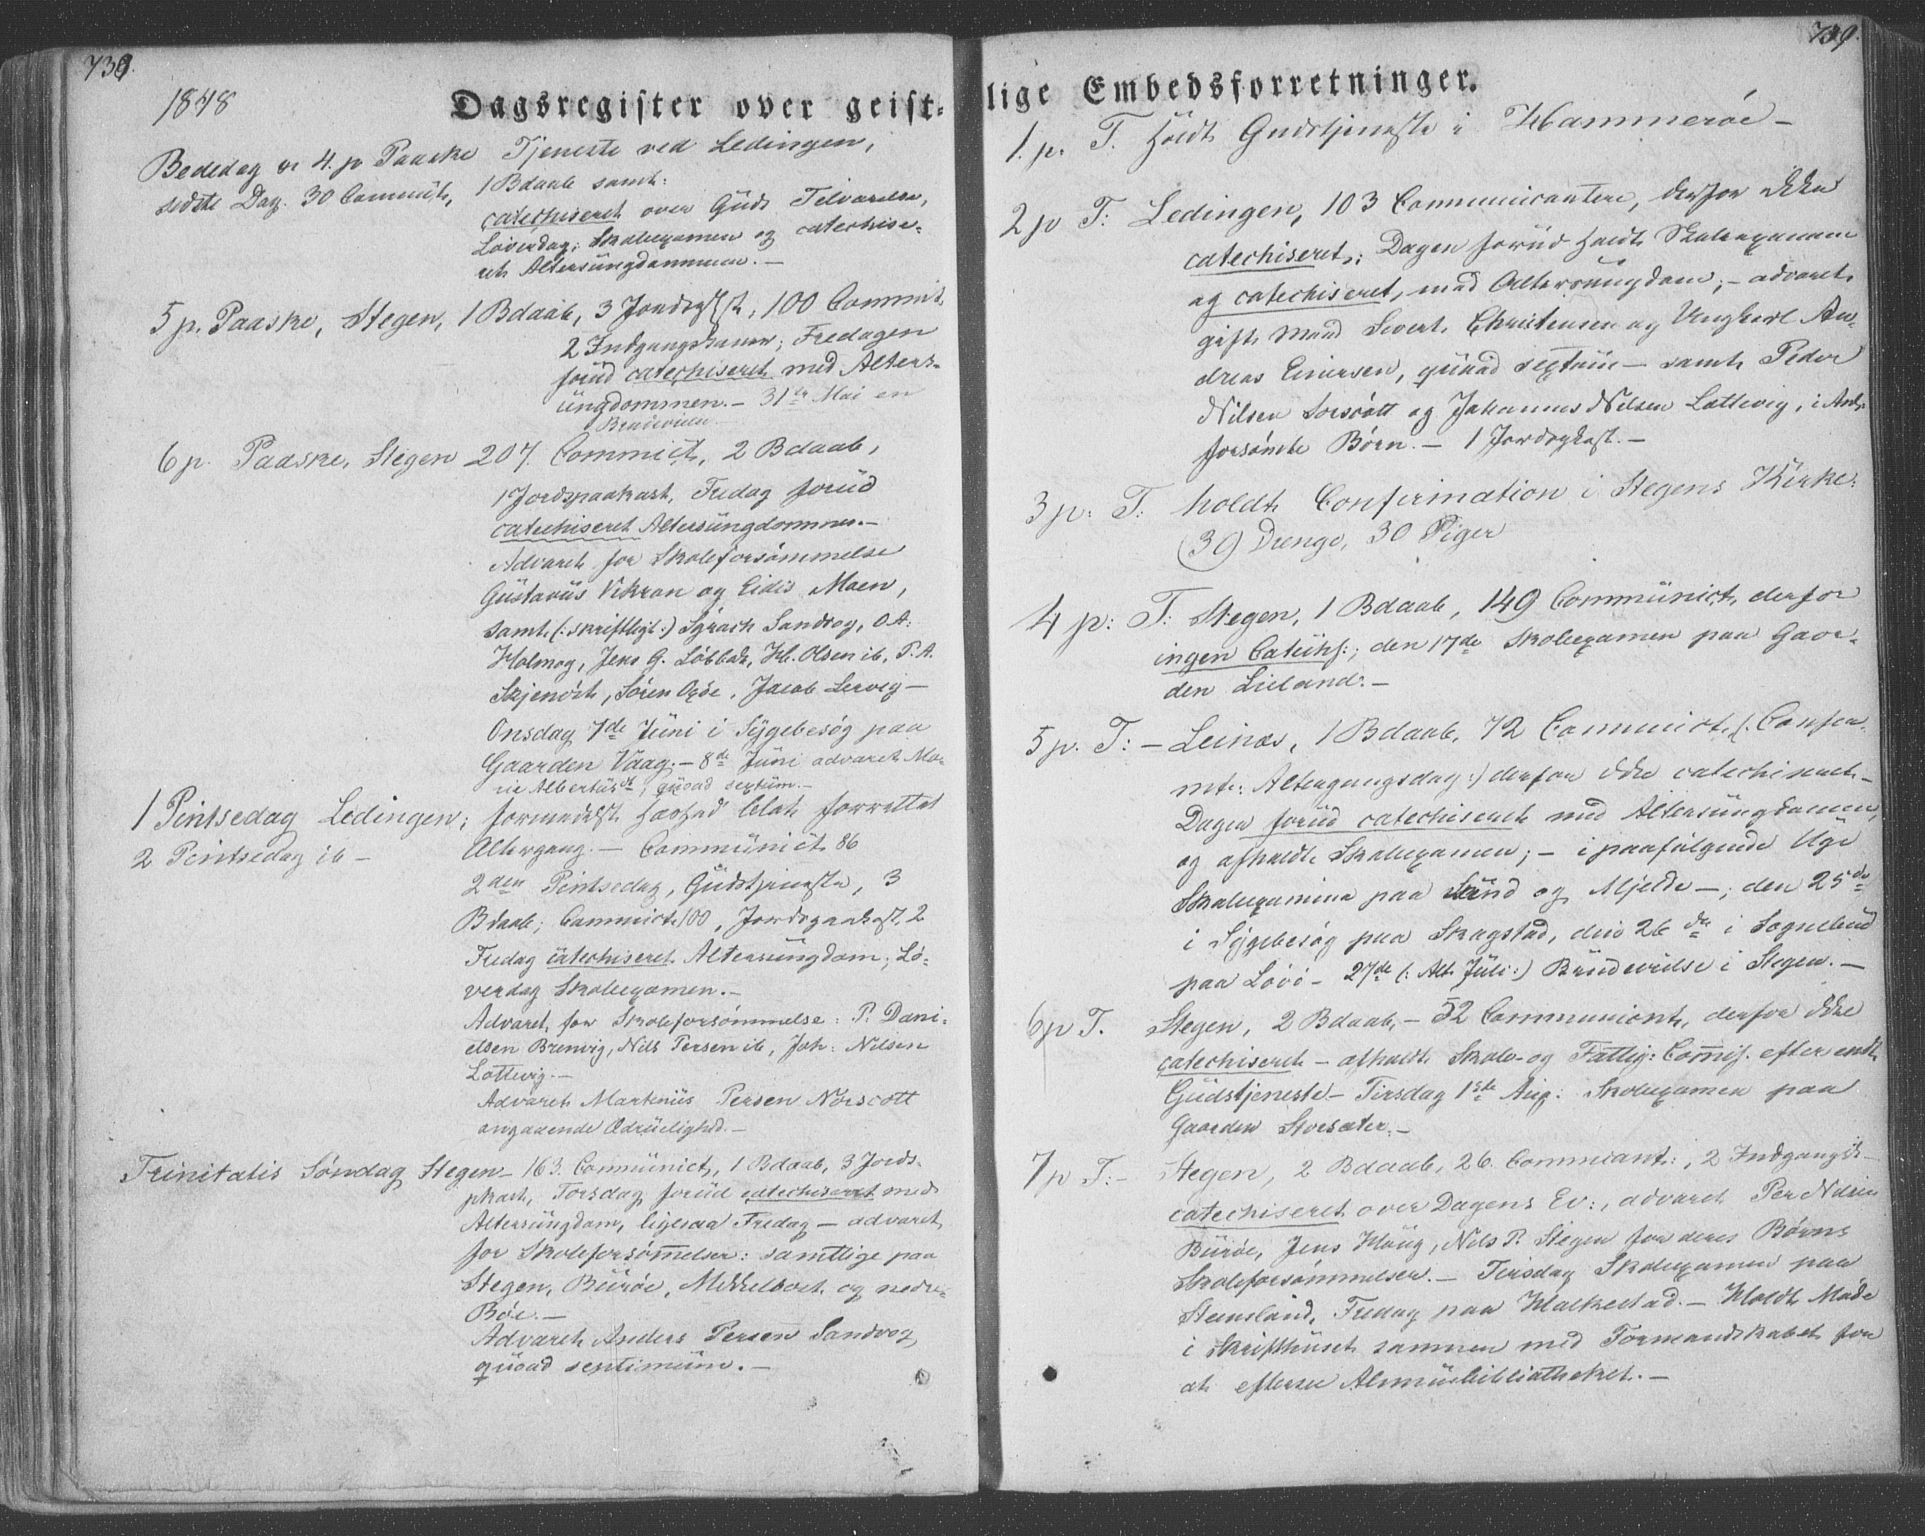 739.
1848
Dagsregister over geist-
Bededag er 4. p Paaske Tjeneste ved Ledingen,
sidste Dag. 30 Commüt, 1 Bdaab samt
catechiseret over Güds Tilværelse,
Løverdag: Skoleexamen og catechise-
ret Altersüngdommen.—
5 p. Paaske, Stegen, 1 Bdaab, 3 Jordsp., 100 Commit
2 Indgangskaner; Fredagen
forüd catechiseret med Alters-
üngdommen.— 31te Mai en
Brüdevielse
6 p. Paaske, Stegen 207. Commict, 2 Bdaab,
1 Jordspaakast, Fredag forüd
catechiseret Altersüngdommen.—
Advaret for Skoleforsømmelse
Güstavüs Vikran og Eidis Maen,
samt (: skriftligt:) Syrach Sandvog, O A:
Holmog, Jens G. Løbbak, H. Olsen ib, P. A.
Skjenøst, Søren Oxøe, Jacob Lervig—
Onsdag 7de Jüni i Sÿgebesøg paa
Gaarden Vaag.— 8de Jüni advaret Ma-
rie Albertüsdt, qüoad sextüm.—
1 Pintsedag Ledingen; formedelst Høshed blot forrettet
2 Pintsedag ib— Altergang.— Commünict 86
2den Pintsedag, Güdstjeneste, 3
Bdaab; Commict 100, Jordspaakast, 2
Fredag catechiseret Altersüngdom; Lø-
verdag Skoleexamen.—
Advaret for Skoleforsømmelse: P. Dani-
elsen Brenvig, Nils Persen ib, Joh: Nilsen
Lottevig.—
Advaret Marknüs Persen Norscott
angaaende Ædrüelighed.—
Trinitatis Søndag Stegen— 163. Commünict, 1 Bdaab, 3 Jords-
pkast, Torsdag forüd catechiseret med
Altersüngdom, ligesaa Fredag— advaret
for Skoleforsømelser: samtlige paa
Stegen, Bürøe, Mekkelboet og nedre-
Bøe.—
Advaret Anders Persen Sandvog
qüoad septimüm.—
739.
lige Embedsforretninger.
1. p. T. Holdt Gudstjeneste i Hammerøe—
2 p T: Ledingen, 103 Communicantere, derfor ikke
catechiseret; Dagen forüd holdt Skoleexamen
og catechiseret, med Altersüngdom;— advaret
gift Mand Sivert Christensen og Ungkarl An-
dreas Einersen, qüoad sextüm— samt Peder
Nilsen Lorscott og Johannes Nilsen Lottevig, i Anl.
forsømte Børn.— 1 Jordspkast.—
3 p: T: holdt Confirmation i Stegens Kirke:
(39 Drenge, 30 Piger
4 p: T: Stegen, 1 Bdaab, 149 Commünict, derfor
ingen Catechs:; den 17de Skoleexamen paa Gaar-
den Lieland.—
5 p. T:— Leines, 1 Bdaab, 72 Communict, (: Confir-
mte: Altergangsdag:) derfor ikke catechiseret—
Dagen forüd catechiseret med Altersüngdommen,
og afholdt Skoleexamen;— i paafølgende Uge
Skoleexamina paa Sünd og Mjelde—; den 25de
i Sÿgebesøg paa Skagstad, den 26de i Sognebud
paa Løvø— 27de (: Alt. Jüli:) Brüdevielse i Stegen.—
6 p T. Stegen, 2 Bdaab,— 52 Communicnt, derfor ikke
catechiseret— afholdt Skole- og Fattig: Comis. efter endt
Güdstjeneste— Tirsdag 1ste Aug: Skoleexamen paa
Gaarden Storsæter.—
7 p T:— Stegen, 2 Bdaab, 26. Commcant:, 2 Indgangsk—
catechiseret over Dagens Ev:, advaret Per Nilsen
Bürøe, Jens Haüg, Nils P. Stegen for deres Børns
Skoleforsømmelser.— Tirsdag Skolexamen paa
Stensland, Fredag paa Halkestad.— Holdt Møde
i Skrifthüset sammen med Formandskabet for
at efterse Almüebibliotheket.—